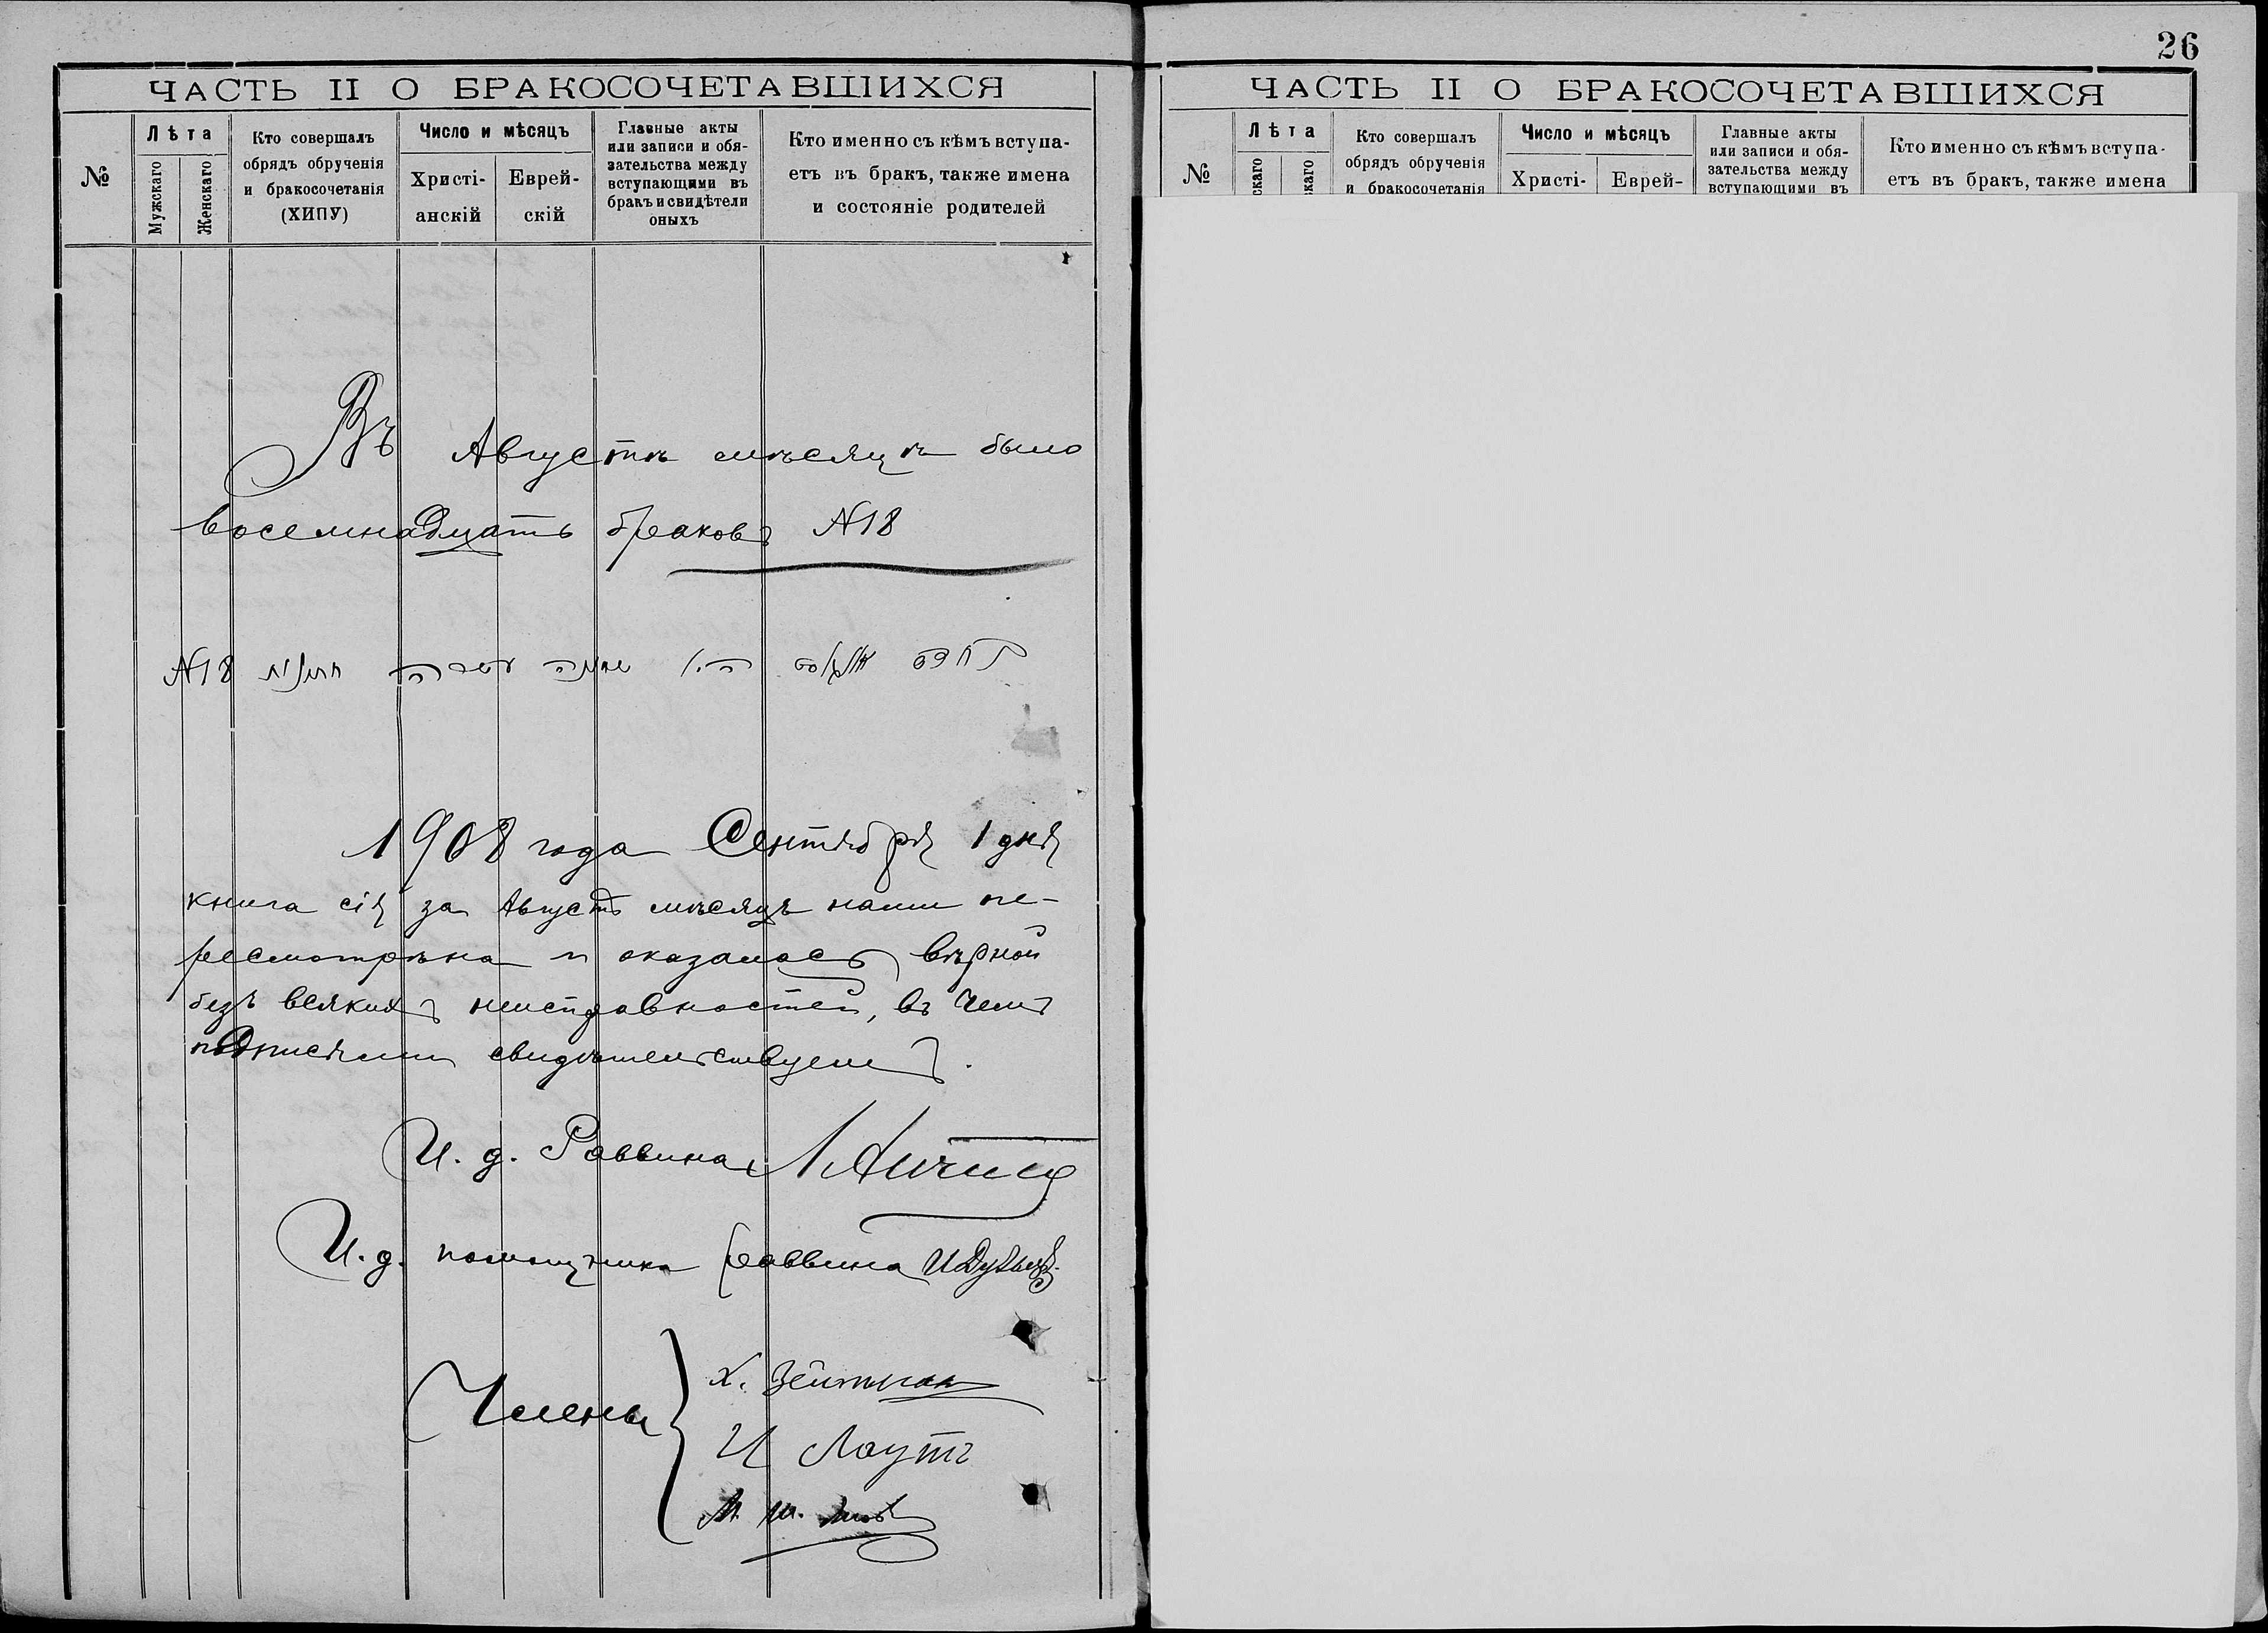 ЧАСТЬ II О БРАКОСОЧЕТАВШИХСЯ
№
Лѣта
Мужскаго
Женскаго
Кто совершалъ
обрядъ обрученія
и бракосочетанія
(ХИПУ)
Число и мѣсяцъ
Христі-
анскій
Еврей-
скій
Главные акты
или записи и обя-
зательства между
вступающими въ
бракъ и свидѣтели
оныхъ
Кто именно съ кѣмъ вступа-
етъ въ бракъ, также имена
и состояніе родителей
Въ Августѣ мѣсяцѣ было
восемнадцать браковъ №18
№18
1908 года Сентября 1 дня
книга сія за Августъ мѣсяцъ нами пе-
ресмотрѣна и оказалась вѣрной
безъ всякихъ неисправностей, въ чемъ
подписями свидѣтельствуемъ.
И. д. Раввина
И. д. помощника раввина
Члены
Х. Зейтман
И Лаутъ
М. Ш.
26
ЧАСТЬ II О БРАКОСОЧЕТАВШИХСЯ
№
Лѣта
скаго
скаго
Кто совершалъ
обрядъ обрученія
и бракосочетанія
Число и мѣсяцъ
Христі-
Еврей-
Главные акты
или записи и обя-
зательства между
вступающими въ
Кто именно съ кѣмъ вступа-
етъ въ бракъ, также имена